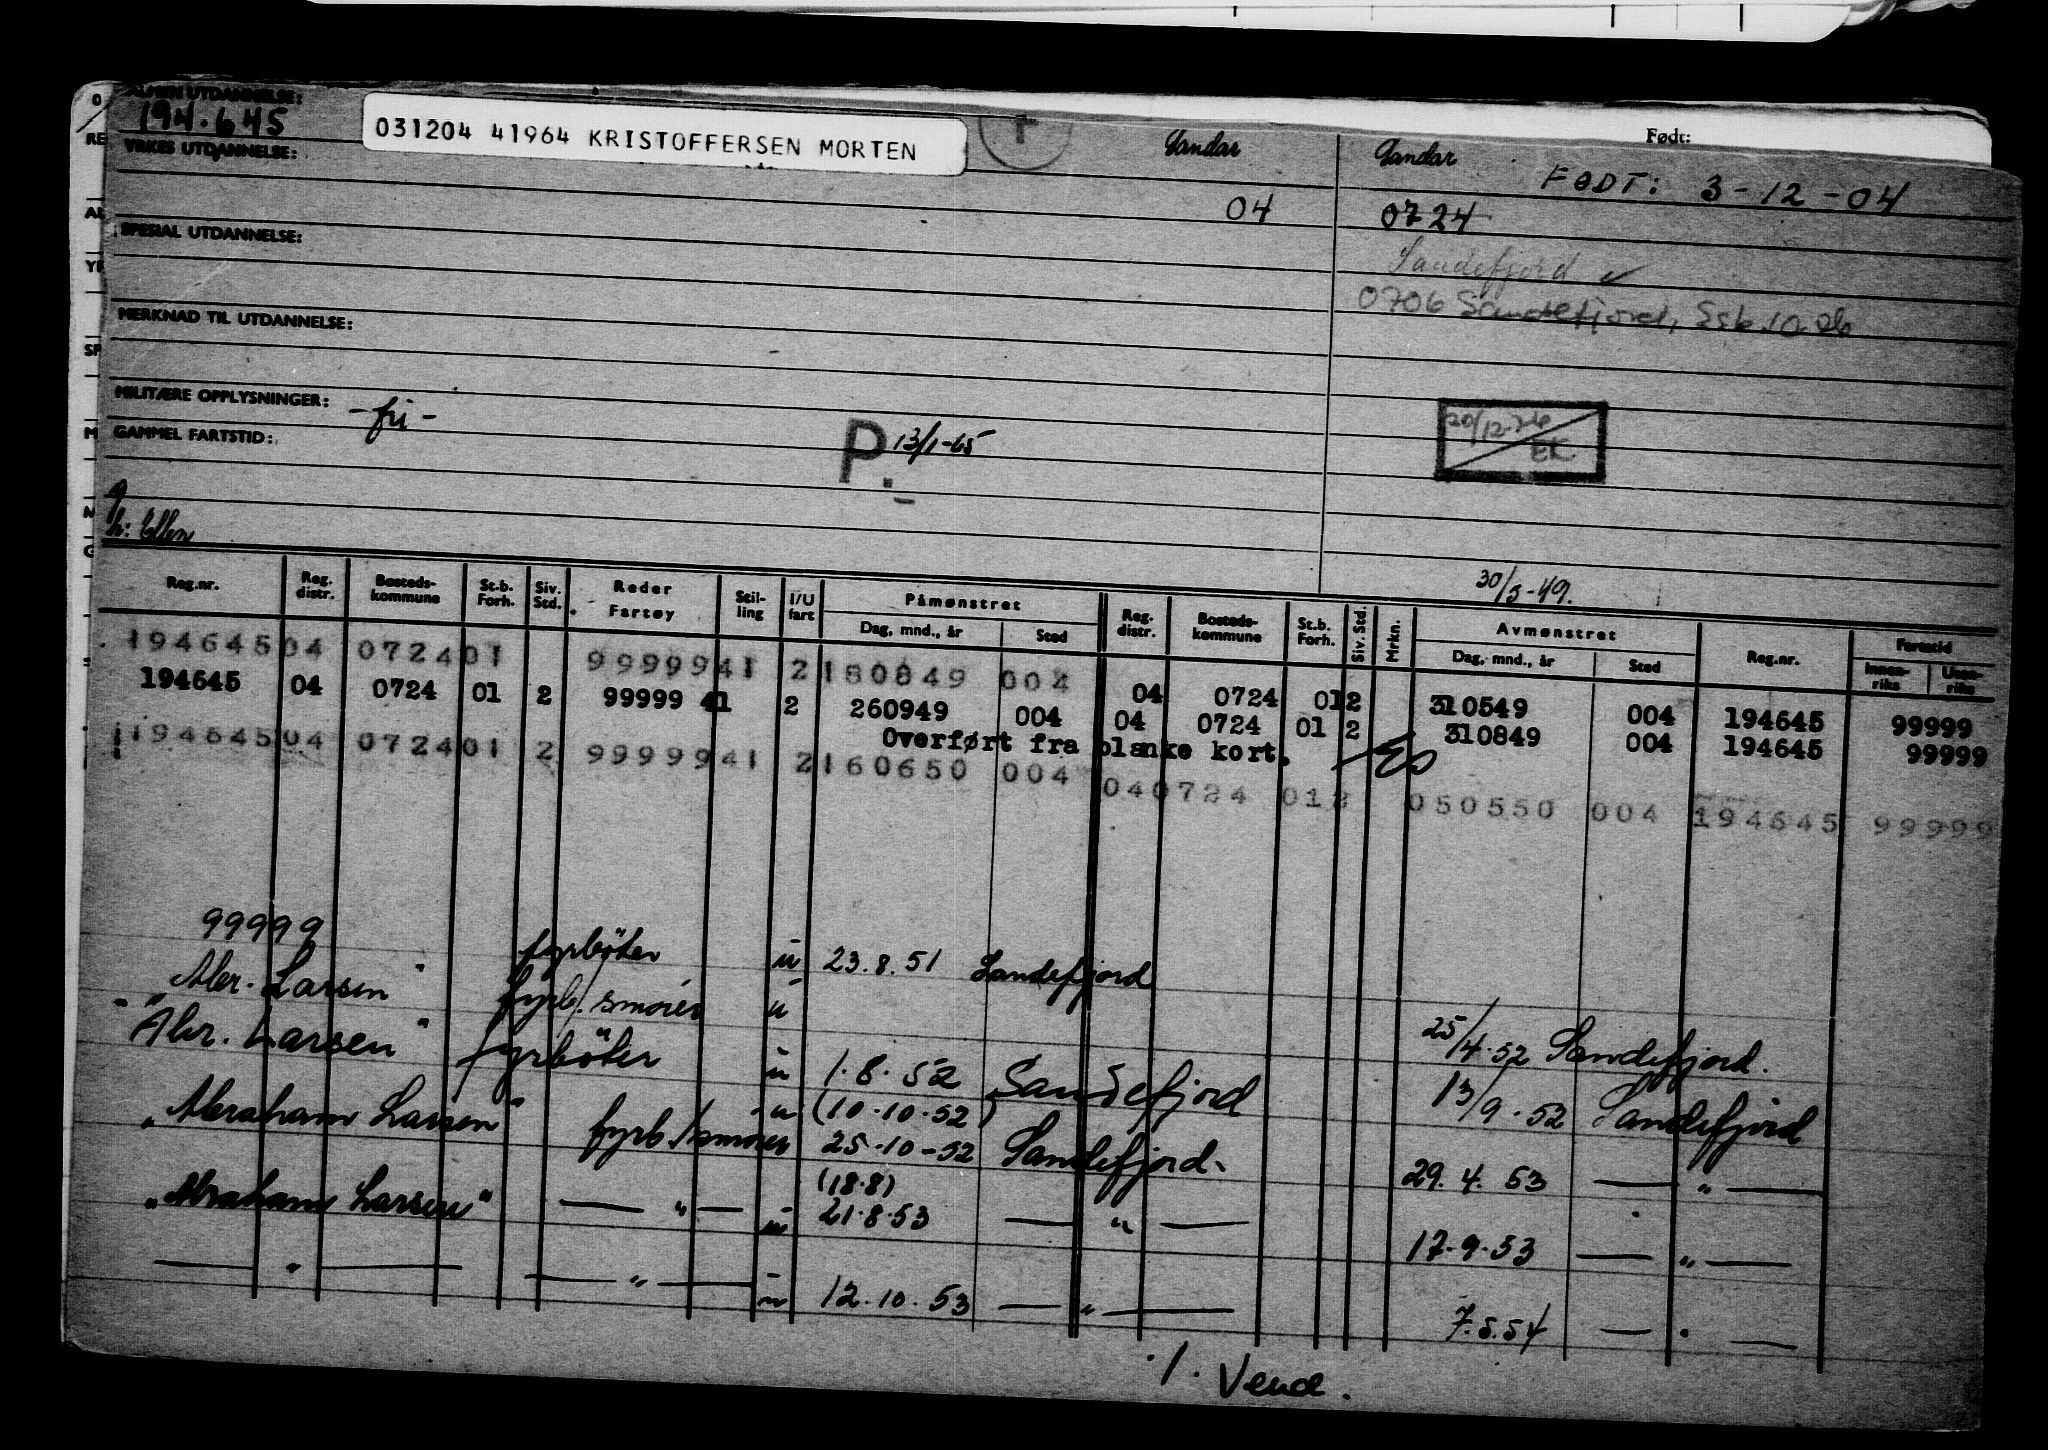 ALMEN UTDANNELSE:
194.645
031204 41964 KRISTOFFERSEN MORTEN
YRKES UTDANNELSE:
Sandar
04
Sandar
Født:
FØDT: 3-12-04
0724
Sandefjord ✓
0706 Sandefjord,
SPESIAL UTDANNELSE:
MERKNAD TIL UTDANNELSE:
MILITÆRE OPPLYSNINGER: -fri-
GAMMEL FARTSTID:
P. 13/1-65
20/12-76
EK
h: Ellen
30/5-49.
Reg.nr. Reg. distr. Bosteds-kommune St.b. Forh. Siv. Std. Reder Fartøy Stil-ling I/U fart Påmønstret Dag, mnd., år Sted Reg. distr. Bosteds-kommune St.b. Forh. Siv. Std. Mrkn. Avmønstret Dag, mnd., år Sted Reg.nr. Fartstid Innen-riks Uten-riks
194645 04 0724 01 99999 41 2 180849 004 04 0724 01 2 310549 004 194645 99999
194645 04 0724 01 2 99999 41 2 260949 004 04 0724 01 2 310849 004 194645 99999
Overført fra blanke kort.
194645 04 0724 01 2 99999 41 2 160650 004 04 0724 01 2 050550 004 194645 99999
99999 fyrbøter u 23.8.51 Sandefjord
Abr. Larsen" fyrb/smører u 25/4.52 Sandefjord.
"Abr. Larsen" fyrbøter u 1.8.52 Sandefjord 13/9.52 Sandefjord
(10.10.52)
"Abraham Larsen" fyrb./smører u 25-10-52 Sandefjord. 29.4.53 — " —
(18.8)
"Abraham Larsen" — " — u 21.8.53 — " — 17.9.53 — " —
— " — — " — u 12.10.53 — " — 7.5.54 — " —
./. Vend.